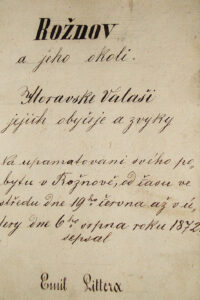 Rožnov
a jeho okolí.
Moravske Valaši
jejich obyčeje a zvyky
Na upamatovaní svého po-
bytu v Rožnově, od času ve
středu dne 19ho června až v ú-
tery dne 6ho srpna roku 1872.
sepsal
Emil Littera